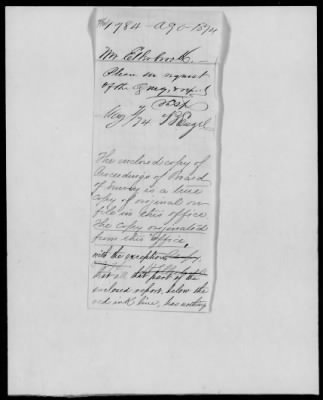 1784 - AGO - 1874
Mr Ellsbrook.
Please see request
of the Q M G, &
Aug /74 Engel
The enclosed copy of
Proceedings of Board
of Survey is a true
copy of original on
file in this office
The copy originated
from this Office,
with the exception
that all that part of the
enclosed report, below the
red ink line, has nothing